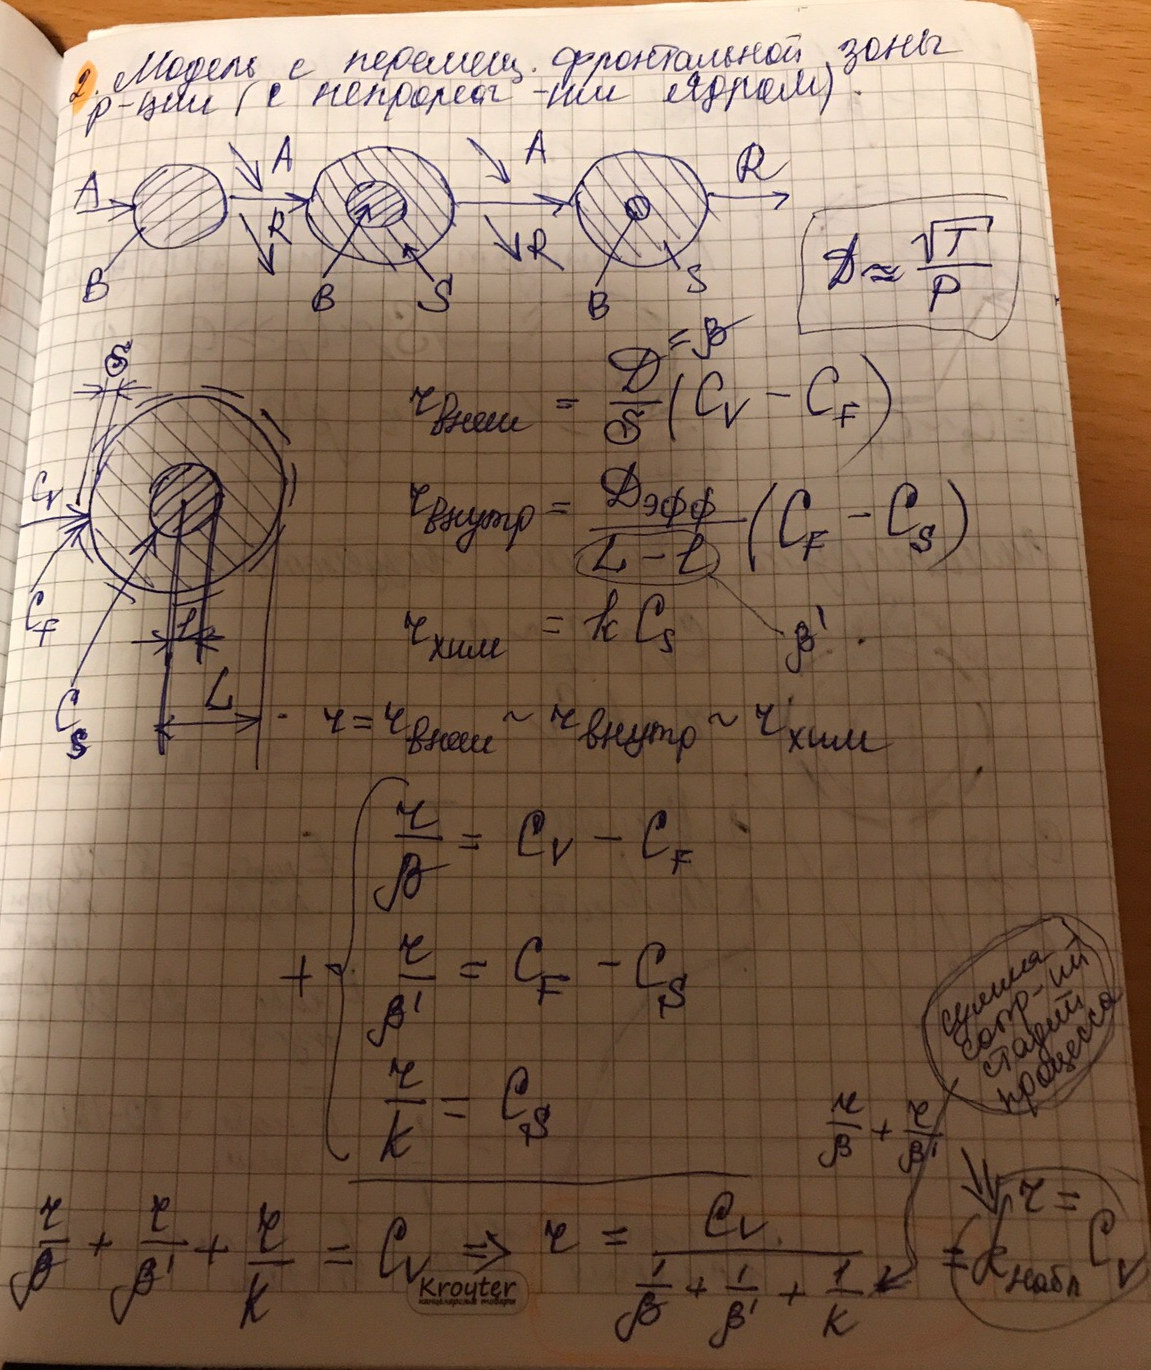 2. Модель с перемещ. фронтальной зоны
р-ции (с непрореаг-им ядром).
A A A R
R R
B B S B S
D ≈ √T / P
δ
= β
r внеш = D/δ (C_V − C_F)
C_V
r внутр = D эфф / (L − l) (C_F − C_S)
C_F
r хим = k C_S β' .
l
L
C_S
r = r внеш ~ r внутр ~ r хим
r/β = C_V − C_F
+ r/β' = C_F − C_S
r/k = C_S
сумма
сопр-ий
стадий
процесса
r/β + r/β'
r/β + r/β' + r/k = C_V ⇒ r = C_V / (1/β + 1/β' + 1/k) = r = k набл C_V
Kroyter
канцелярские товары